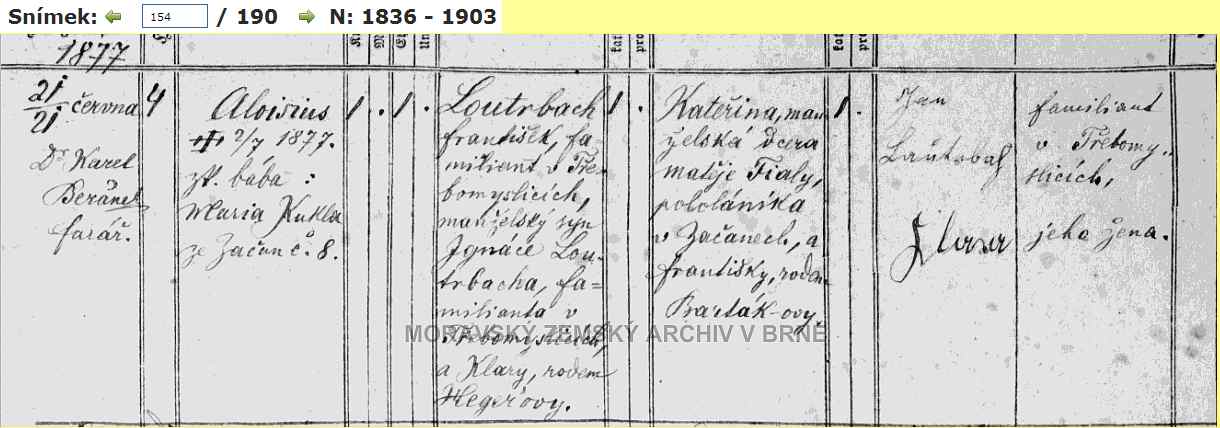 Snímek: 154 / 190 N: 1836 - 1903
1877
21/21 června
Dr Karel
Beránek
farář.
4
Aloisius
2/7 1877.
zk. bába :
Maria Kukla
ze Začan č. 8.
1 . 1 .
Loutrbach
František, fa-
miliant v Tře-
bomyslicích,
manželský syn
Ignáce Lou-
trbacha, fa=
milianta v
Třebomyslicích,
a Klary, rodem
Hegerovy.
1 .
Kateřina, man
želská dcera
matěje Fialy,
pololáníka
v Začanech, a
františky, rodem
Barták-ovy.
1 .
Jan
Lautrbach
Klara
familiant
v Třebomy..
slicích,
jeho žena.
MORAVSKÝ ZEMSKÝ ARCHIV V BRNĚ